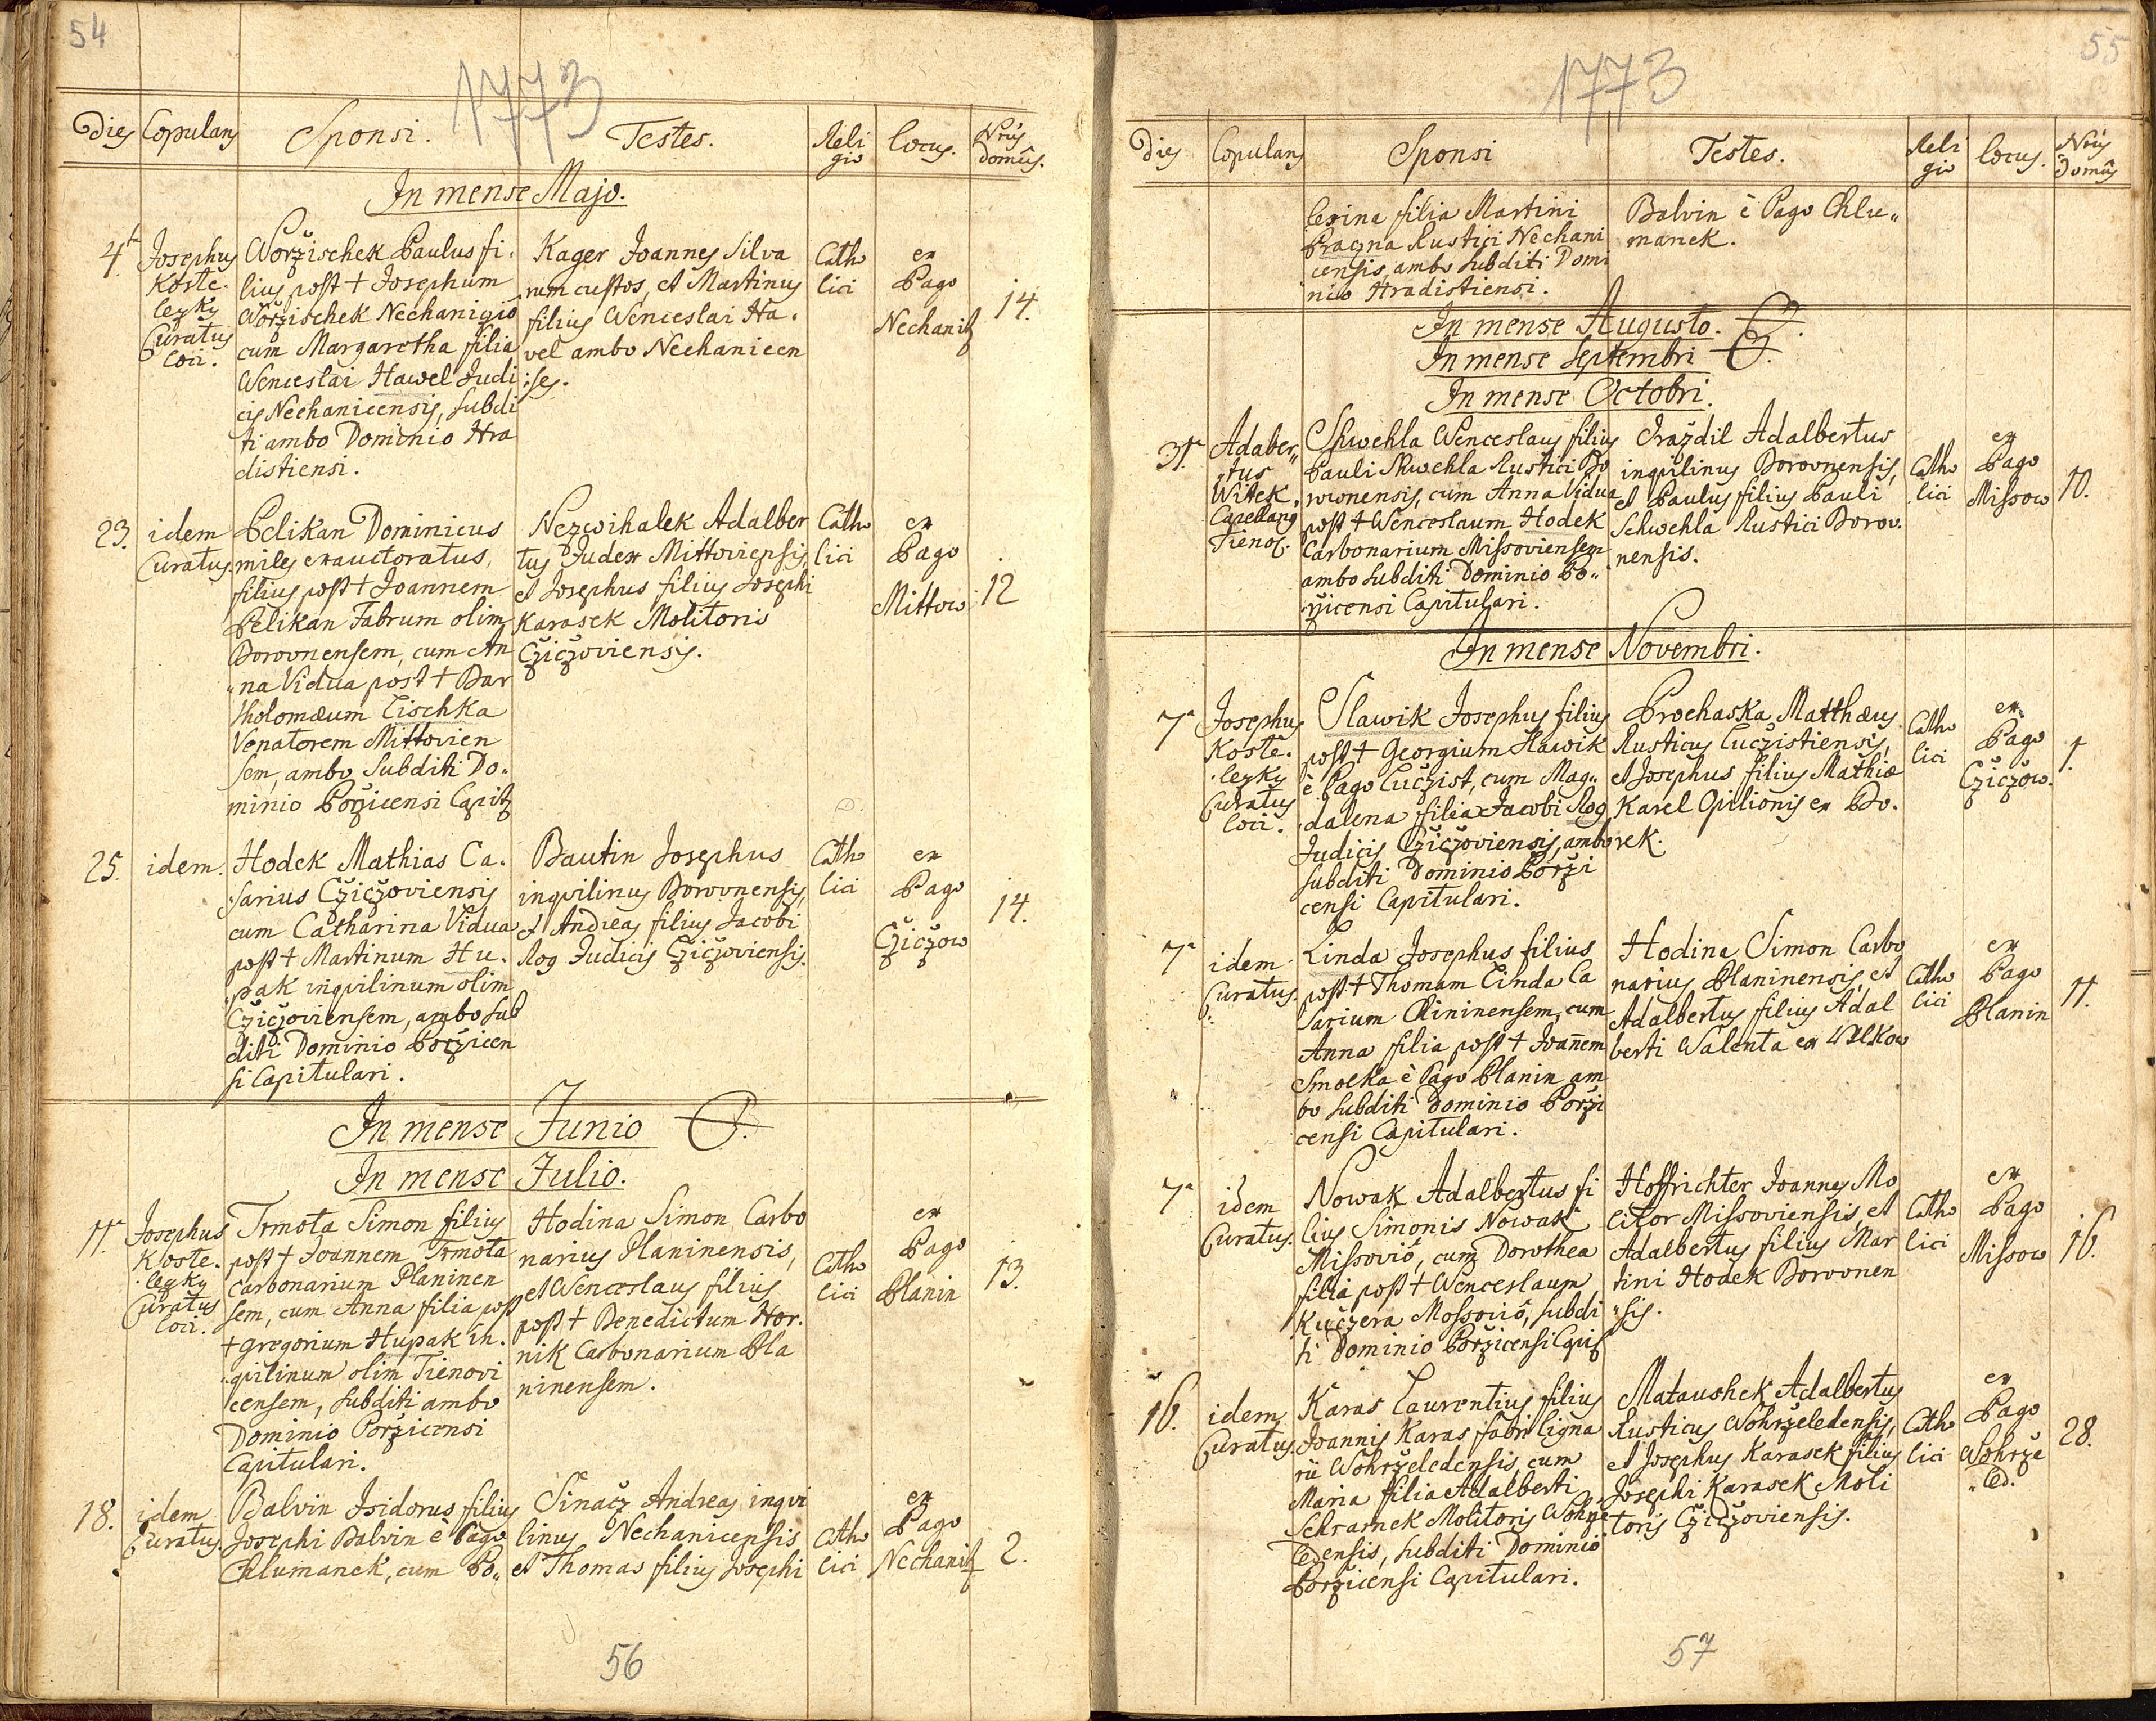 54
1773
Dies Copulans Sponsi. Testes. Religio Locus. Nrus domûs.
In mense Majo.
4ta Josephus Kostelezky Curatus Loci.
Worzischek Paulus fi
lius post + Josephum
Worzischek Nechanicio
cum Margaretha filia
Wenceslai Hawel Judi
cis Nechanicensis, subdi
ti ambo Dominio Hra
distiensi.
Kager Joannes Silva
rum custos, et Martinus
filius Wenceslai Ha
vel ambo Nechanicen
ses.
Catho
lici
ex
Pago
Nechanitz
14.
23. idem
Curatus.
Pelikan Dominicus
miles exauctoratus,
filius post + Joannem
Pelikan Fabrum olim
Borovnensem, cum An
na Vidua post + Bar
tholomæum Lischka
Venatorem Mittovien
sem, ambo Subditi Do
minio Porzicensi Capitl
Nezwihalek Adalber
tus Judex Mittoviensis,
et Josephus filius Josephi
Karasek Molitoris
Cziczoviensis.
Catho
lici
ex
Pago
Mittow
12
25. idem.
Hodek Mathias Ca
sarius Cziczoviensis
cum Catharina Vidua
post + Martinum Hu
pak inqvilinum olim
Cziczoviensem, ambo sub
diti Dominio Porzicen
si Capitulari.
Bautin Josephus
inqvilinus Borovnensis,
et Andreas filius Jacobi
Rog Judicis Cziczoviensis.
Catho
lici
ex
Pago
Cziczow
14.
In mense Junio
In mense Julio.
11a Josephus
Koste
lezky
Curatus
Loci.
Tomota Simon filius
post + Joannem Tomota
Carbonarium Planinen
sem, cum Anna filia post
+ Gregorium Hupak in
quilinum olim Tienovi
censem, subditi ambo
Dominio Porzicensi
Capitulari.
Hodina Simon Carbo
narius Planinensis,
et Wenceslaus filius
post + Benedictum Hor
nik Carbonarium Pla
ninensem.
Catho
lici
ex
Pago
Planin
13.
18. idem
Curatus.
Balvin Isidorus filius
Josephi Balvin è Pago
Chlumanek, cum Po„
Sinacz Andreas inqvi
linus Nechanicensis
et Thomas filius Josephi
Catho
lici
ex
Pago
Nechanitz
2.
56
55
1773
Dies Copulans Sponsi Testes. Religio Locus. Nrus Domûs
lexina filia Martini
Prazna Rustici Nechani
censis, ambo subditi Domi
nio Hradistiensi.
Balvin è Pago Chlu„
manek.
In mense Augusto.
In mense Septembri
In mense Octobri.
31a Adaber„
tus
Witek,
Capellang
Tienov.
Schwehla Wenceslaus filius
Pauli Schwehla Rustici Bo
rovnensis, cum Anna Vidua
post + Wenceslaum Hodek
Carbonarium Missoviensem
ambo subditi Dominio Po„
rzicensi Capitulari.
Drazdil Adalbertus
inqvilinus Borovnensis,
et Paulus filius Pauli
Schwehla Rustici Borov
nensis.
Catho
lici
ex
Pago
Missow
10.
In mense Novembri.
7a Josephus
Koste
lezky
Curatus
Loci.
Slawik Josephus filius
post + Georgium Slawik
è Pago Luczist, cum Mag„
dalena filia Jacobi Rog
Judicis Cziczoviensis, ambo
subditi Dominio Porzi
censi Capitulari.
Prochaska Matthæus
Rusticus Luczistiensis,
et Josephus filius Mathiæ
Karel Opilionis ex Bo
rek.
Catho
lici
ex
Pago
Cziczow.
1.
7a idem
Curatus.
Linda Josephus filius
post + Thomam Linda Ca
sarium Rininensem, cum
Anna filia post + Joannem
Smolka è Pago Planin am
bo subditi Dominio Porzi
censi Capitulari.
Hodina Simon Carbo
narius Planinensis, et
Adalbertus filius Adal
berti Walenta ex Wlkow
Catho
lici
ex
Pago
Planin
11.
7a idem
Curatus.
Nowak Adalbertus fi
lius Simonis Nowak
Missovio, cum Dorothea
filia post + Wenceslaum
Kuczera Mossovio, subdi
ti Dominio Porzicensi Capit
Hoffrichter Joannes Mo
litor Missoviensis, et
Adalbertus filius Mar
tini Hodek Borovnen
„sis.
Catho
lici
ex
Pago
Missow
16.
16. idem
Curatus.
Karas Laurentius filius
Joannis Karas fabri Ligna
rii Wohrzeledensis, cum
Maria filia Adalberti
Schramek Molitoris Wohrze
ledensis, subditi Dominio
Porzicensi Capitulari.
Mataushek Adalbertus
Rusticus Wohrzeledensis,
et Josephus Karasek filius
Josephi Karasek Moli
toris Cziczoviensis.
Catho
lici
ex
Pago
Wohrze
„led.
28.
57